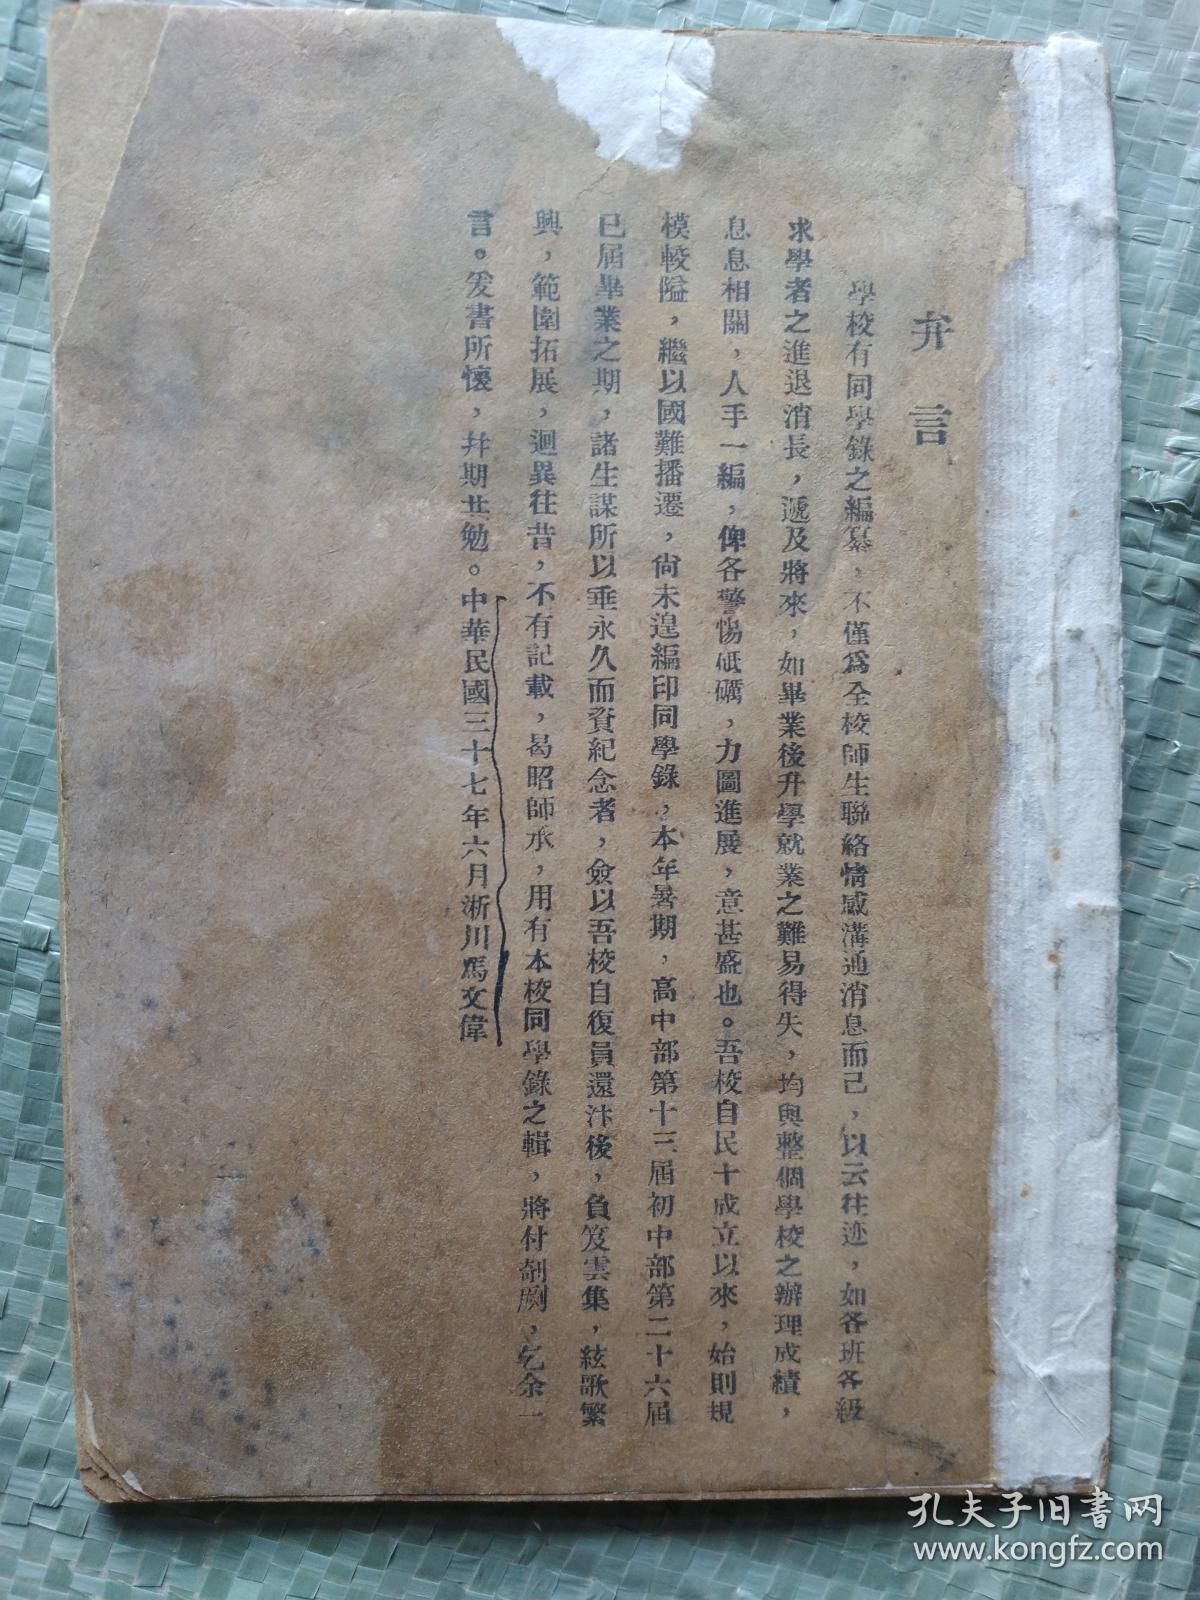 弁言
學校有同學錄之編纂，不僅爲全校師生聯絡情感溝通消息而已，以云往迹，如各班各級
求學者之進退消長，遞及將來，如畢業後升學就業之難易得失，均與整個學校之辦理成績，
息息相關，人手一編，俾各警惕砥礪，力圖進展，意甚盛也。吾校自民十成立以來，始則規
模較隘，繼以國難播遷，尙未遑編印同學錄，本年暑期，高中部第十三屆初中部第二十六屆
已屆畢業之期，諸生謀所以垂永久而資紀念者，僉以吾校自復員還汴後，負笈雲集，絃歌繁
興，範圍拓展，迥異往昔，不有記載，曷昭師承，用有本校同學錄之輯，將付剞劂，乞余一
言。爰書所懷，幷期共勉。中華民國三十七年六月淅川馬文偉
孔夫子旧书网
www.kongfz.com